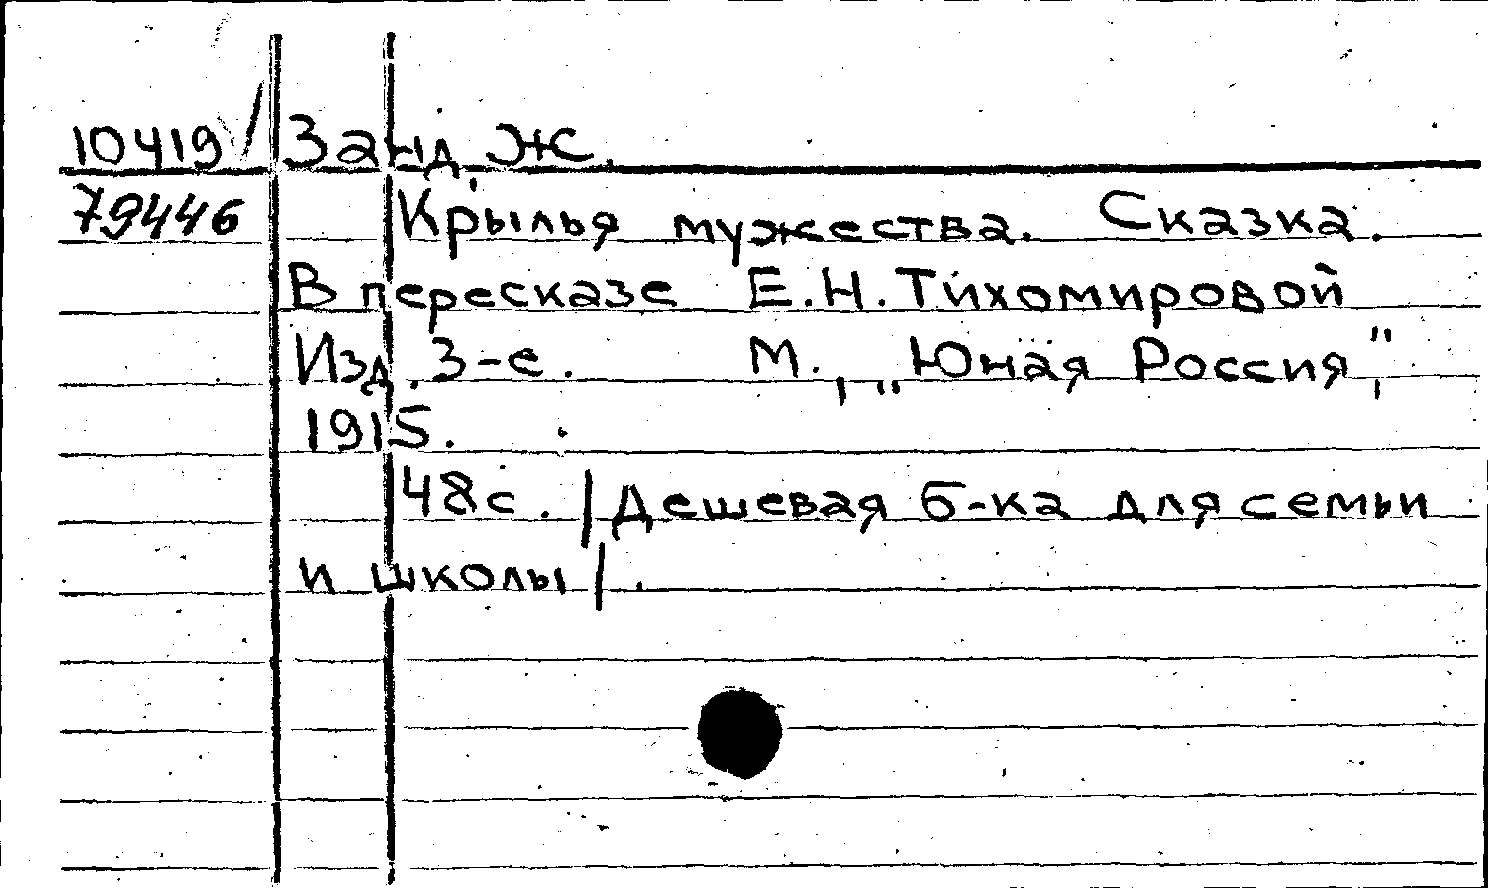 10419 Занд, Ж.
79446 Крылья мужества. Сказка.
В пересказе Е.Н.Тихомировой
Изд. 3-е. М., „Юная Россия",
1915.
48с. /Дешевая б-ка для семьи
и школы/.